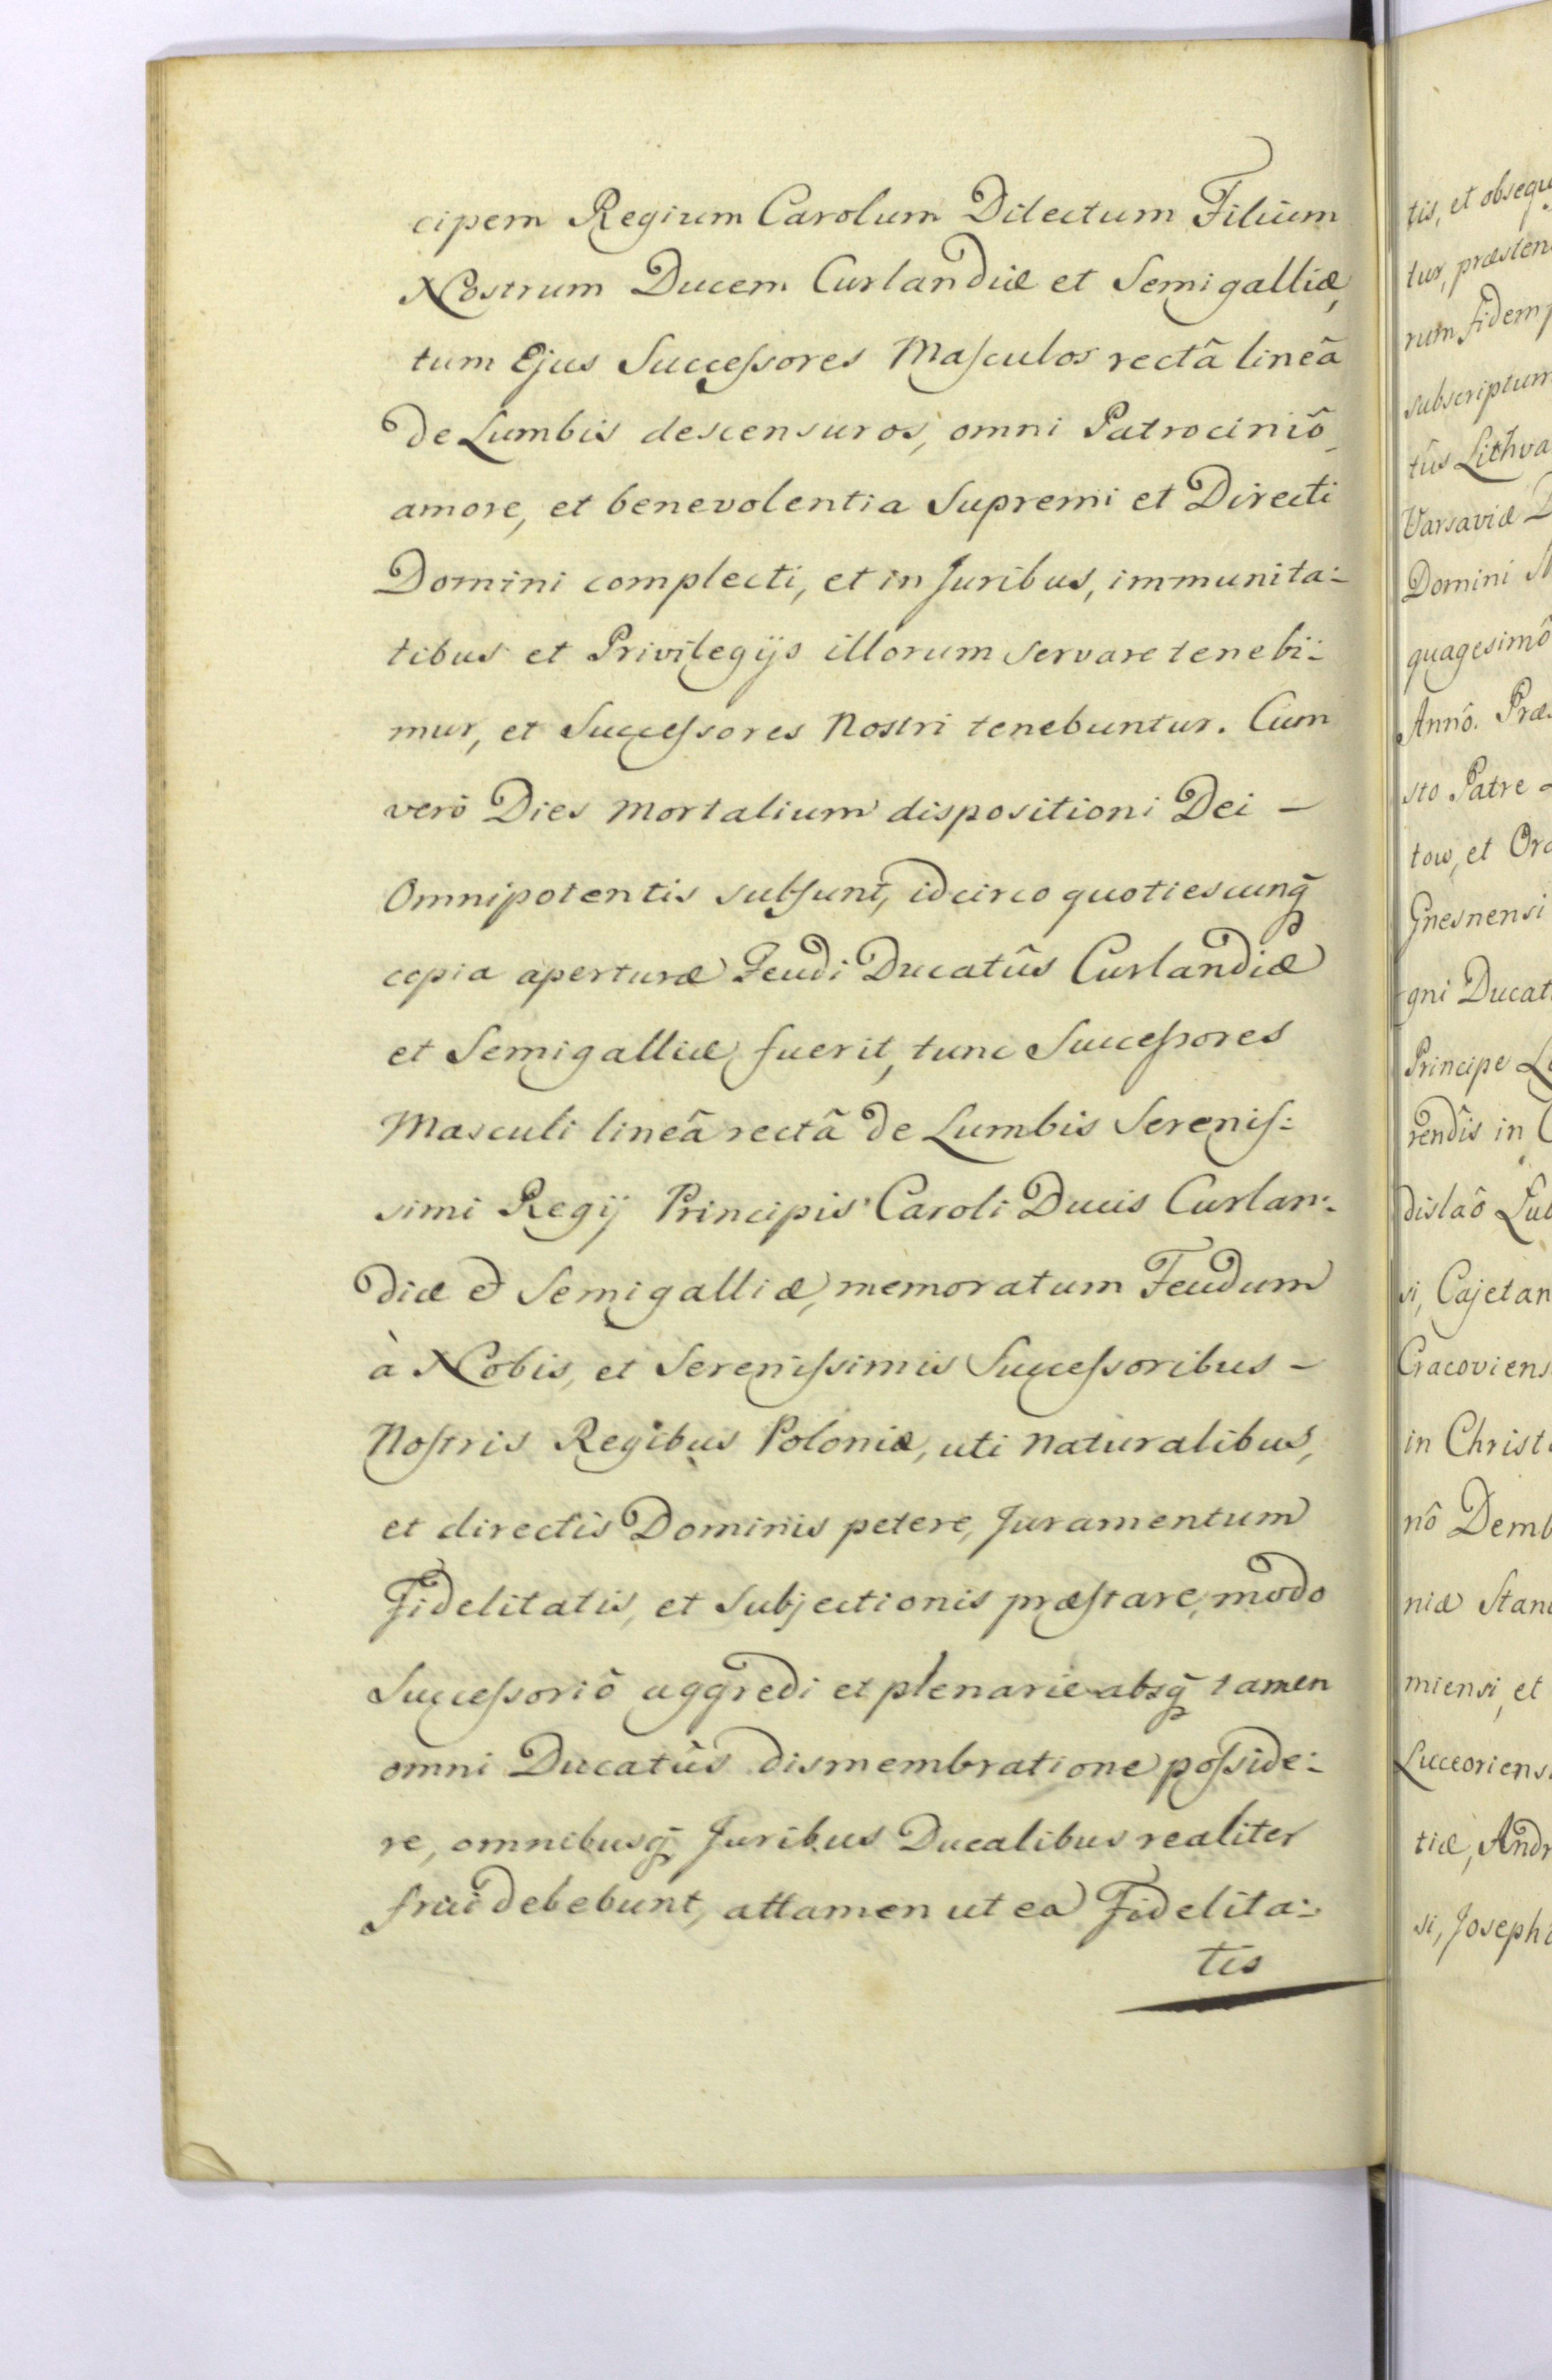 cipem Regium Carolum Dilectum Filium
Nostrum Ducem Curlandiæ et Semigalliæ,
tum Ejus Succeſsores Maſculos rectâ lineâ
de Lumbis descensuros, omni Patrociniô
amore, et benevolentia Supremi et Directi
Domini complecti, et in Juribus, immunita:
tibus et Privilegijs illorum servare tenebi:
mur, et Succeſsores Nostri tenebuntur. Cum
verô Dies Mortalium dispositioni Dei –
Omnipotentis subſunt, idcirco quotiescunq̃
copia aperturæ Feudi Ducatûs Curlandiæ
et Semigalliæ fuerit, tunc Succeſsores
Masculi lineâ rectâ de Lumbis Sereniſ:
simi Regij Principis Caroli Ducis Curlan:
diæ & Semigalliæ, memoratum Feudum
à Nobis, et Sereniſsimis Succeſsoribus –
Noſtris Regibus Poloniæ, uti Naturalibus,
et directis Dominis petere, Juramentum
Fidelitatis, et Subjectionis præſtare, modo
Succeſsoriô aggredi et plenarie absq̃ tamen
omni Ducatûs dismembratione poſside:
re, omnibusq̃ Juribus Ducalibus realiter
frui debebunt, attamen ut ea Fidelita:
tis
tis, et obsequ
tur, præsten
rum fidem
subscriptum
tûs Lithva
Varsaviæ D
Domini M
quagesimô
Annô. Præ
sto Patre
tow, et Or
Gnesnensi
gni Ducat
Principe
rendis in
dislaô Lub
si, Cajetan
Cracoviens
in Christ
nô Demb
niæ Stan
miensi, et
Luceoriens
tiæ, Andr
si, Joseph